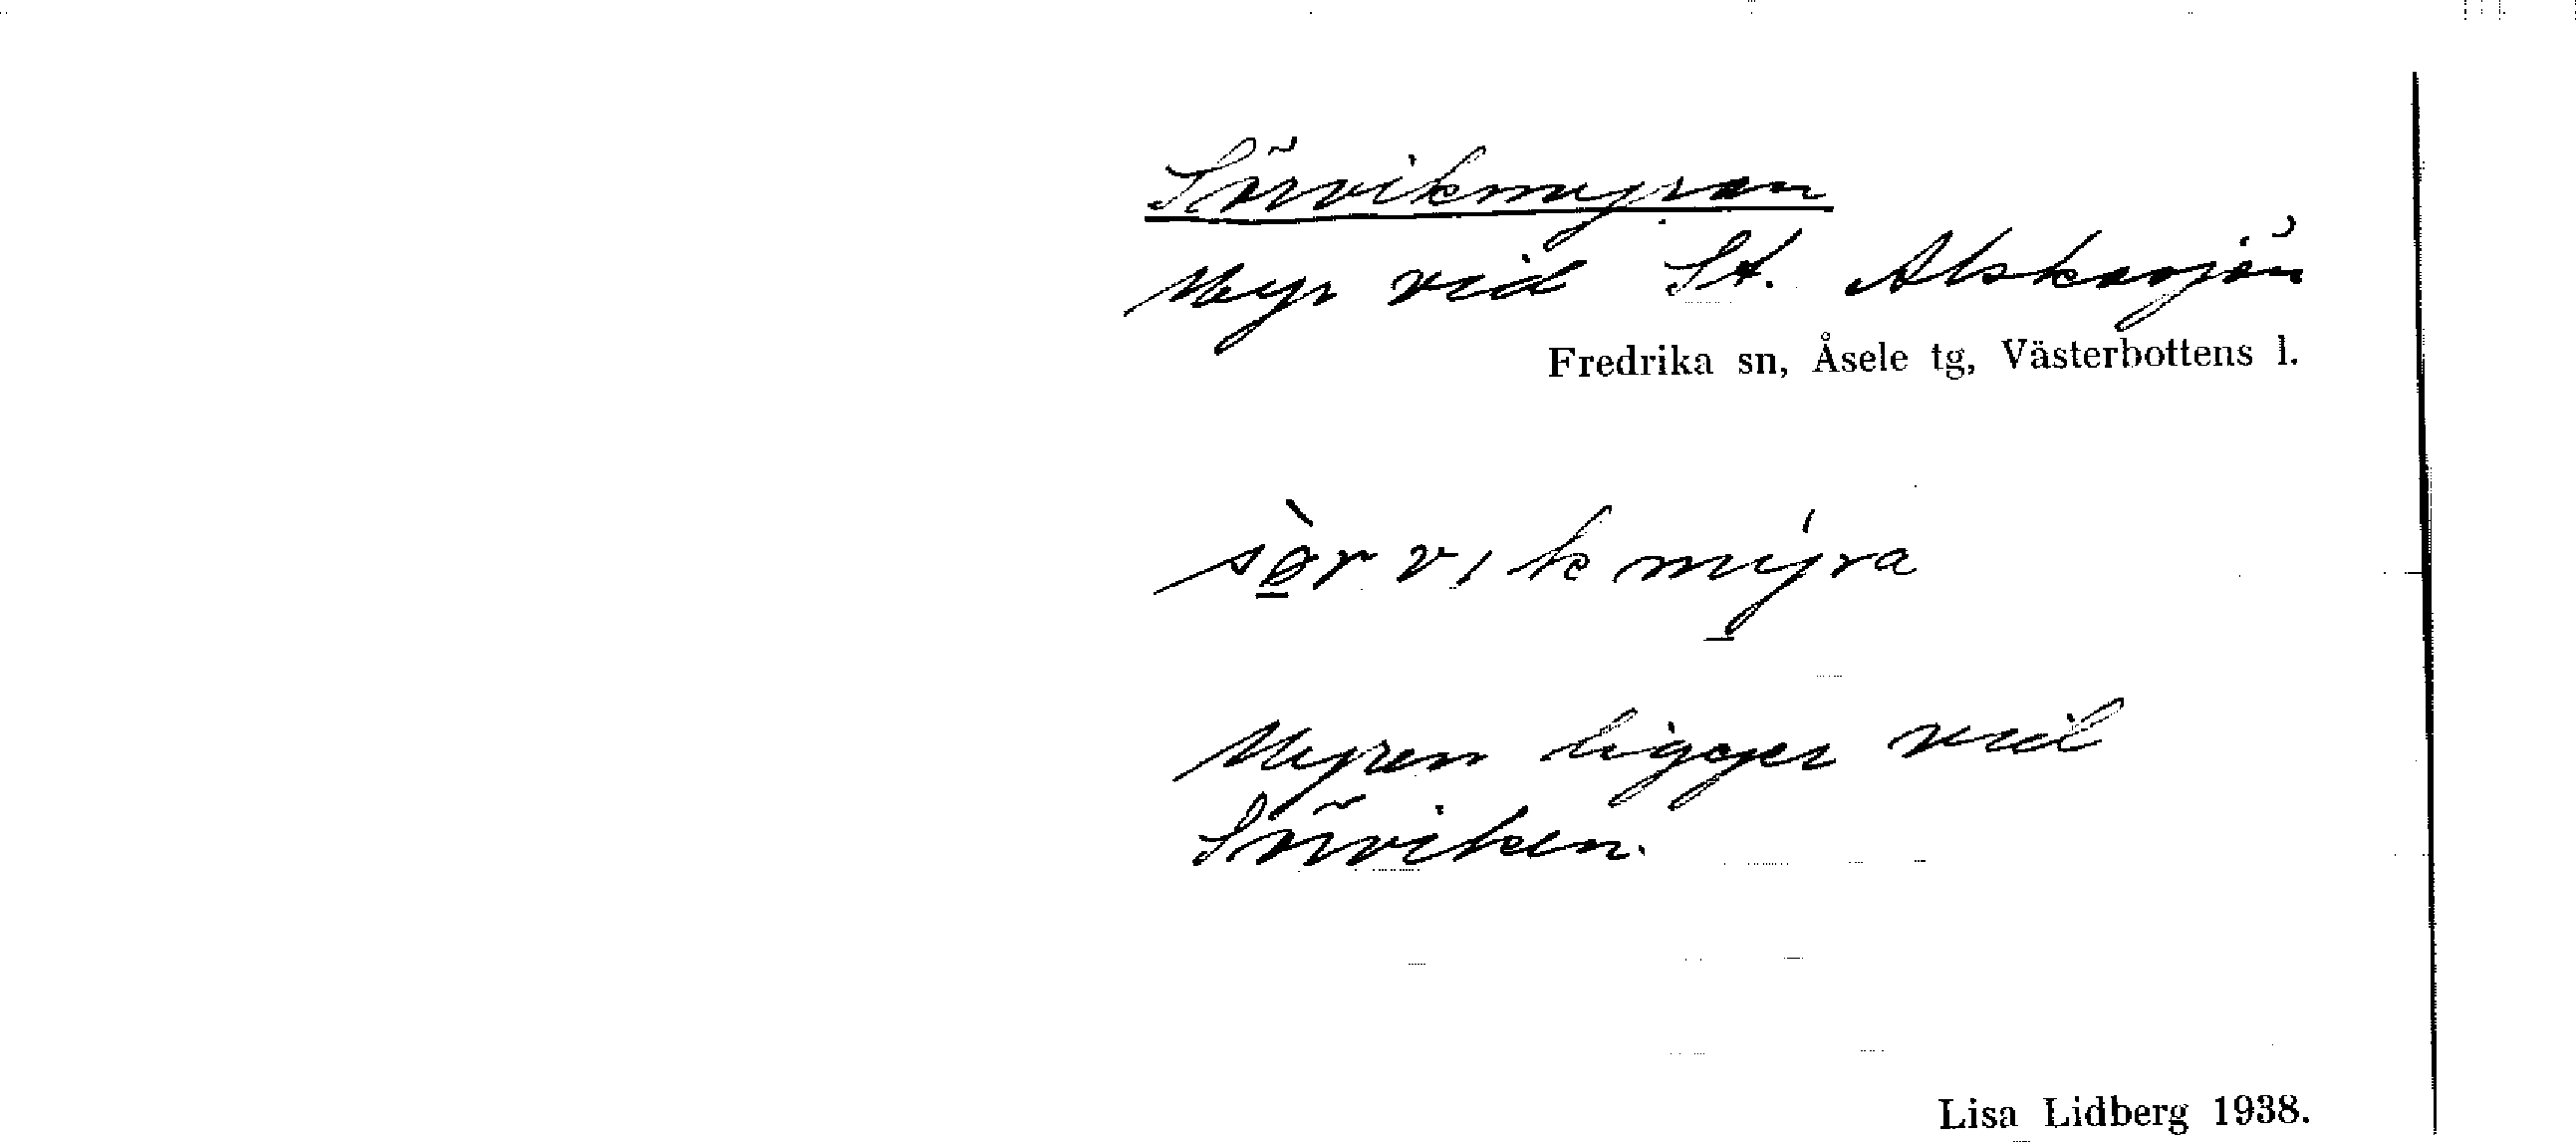 Sörvikmyran
Myr vid St. Alsksjön
Fredrika sn, Åsele tg, Västerbottens l.
sø̀rvıkmýra
Myren ligger vid
Sörviken.
Lisa Lidberg 1938.